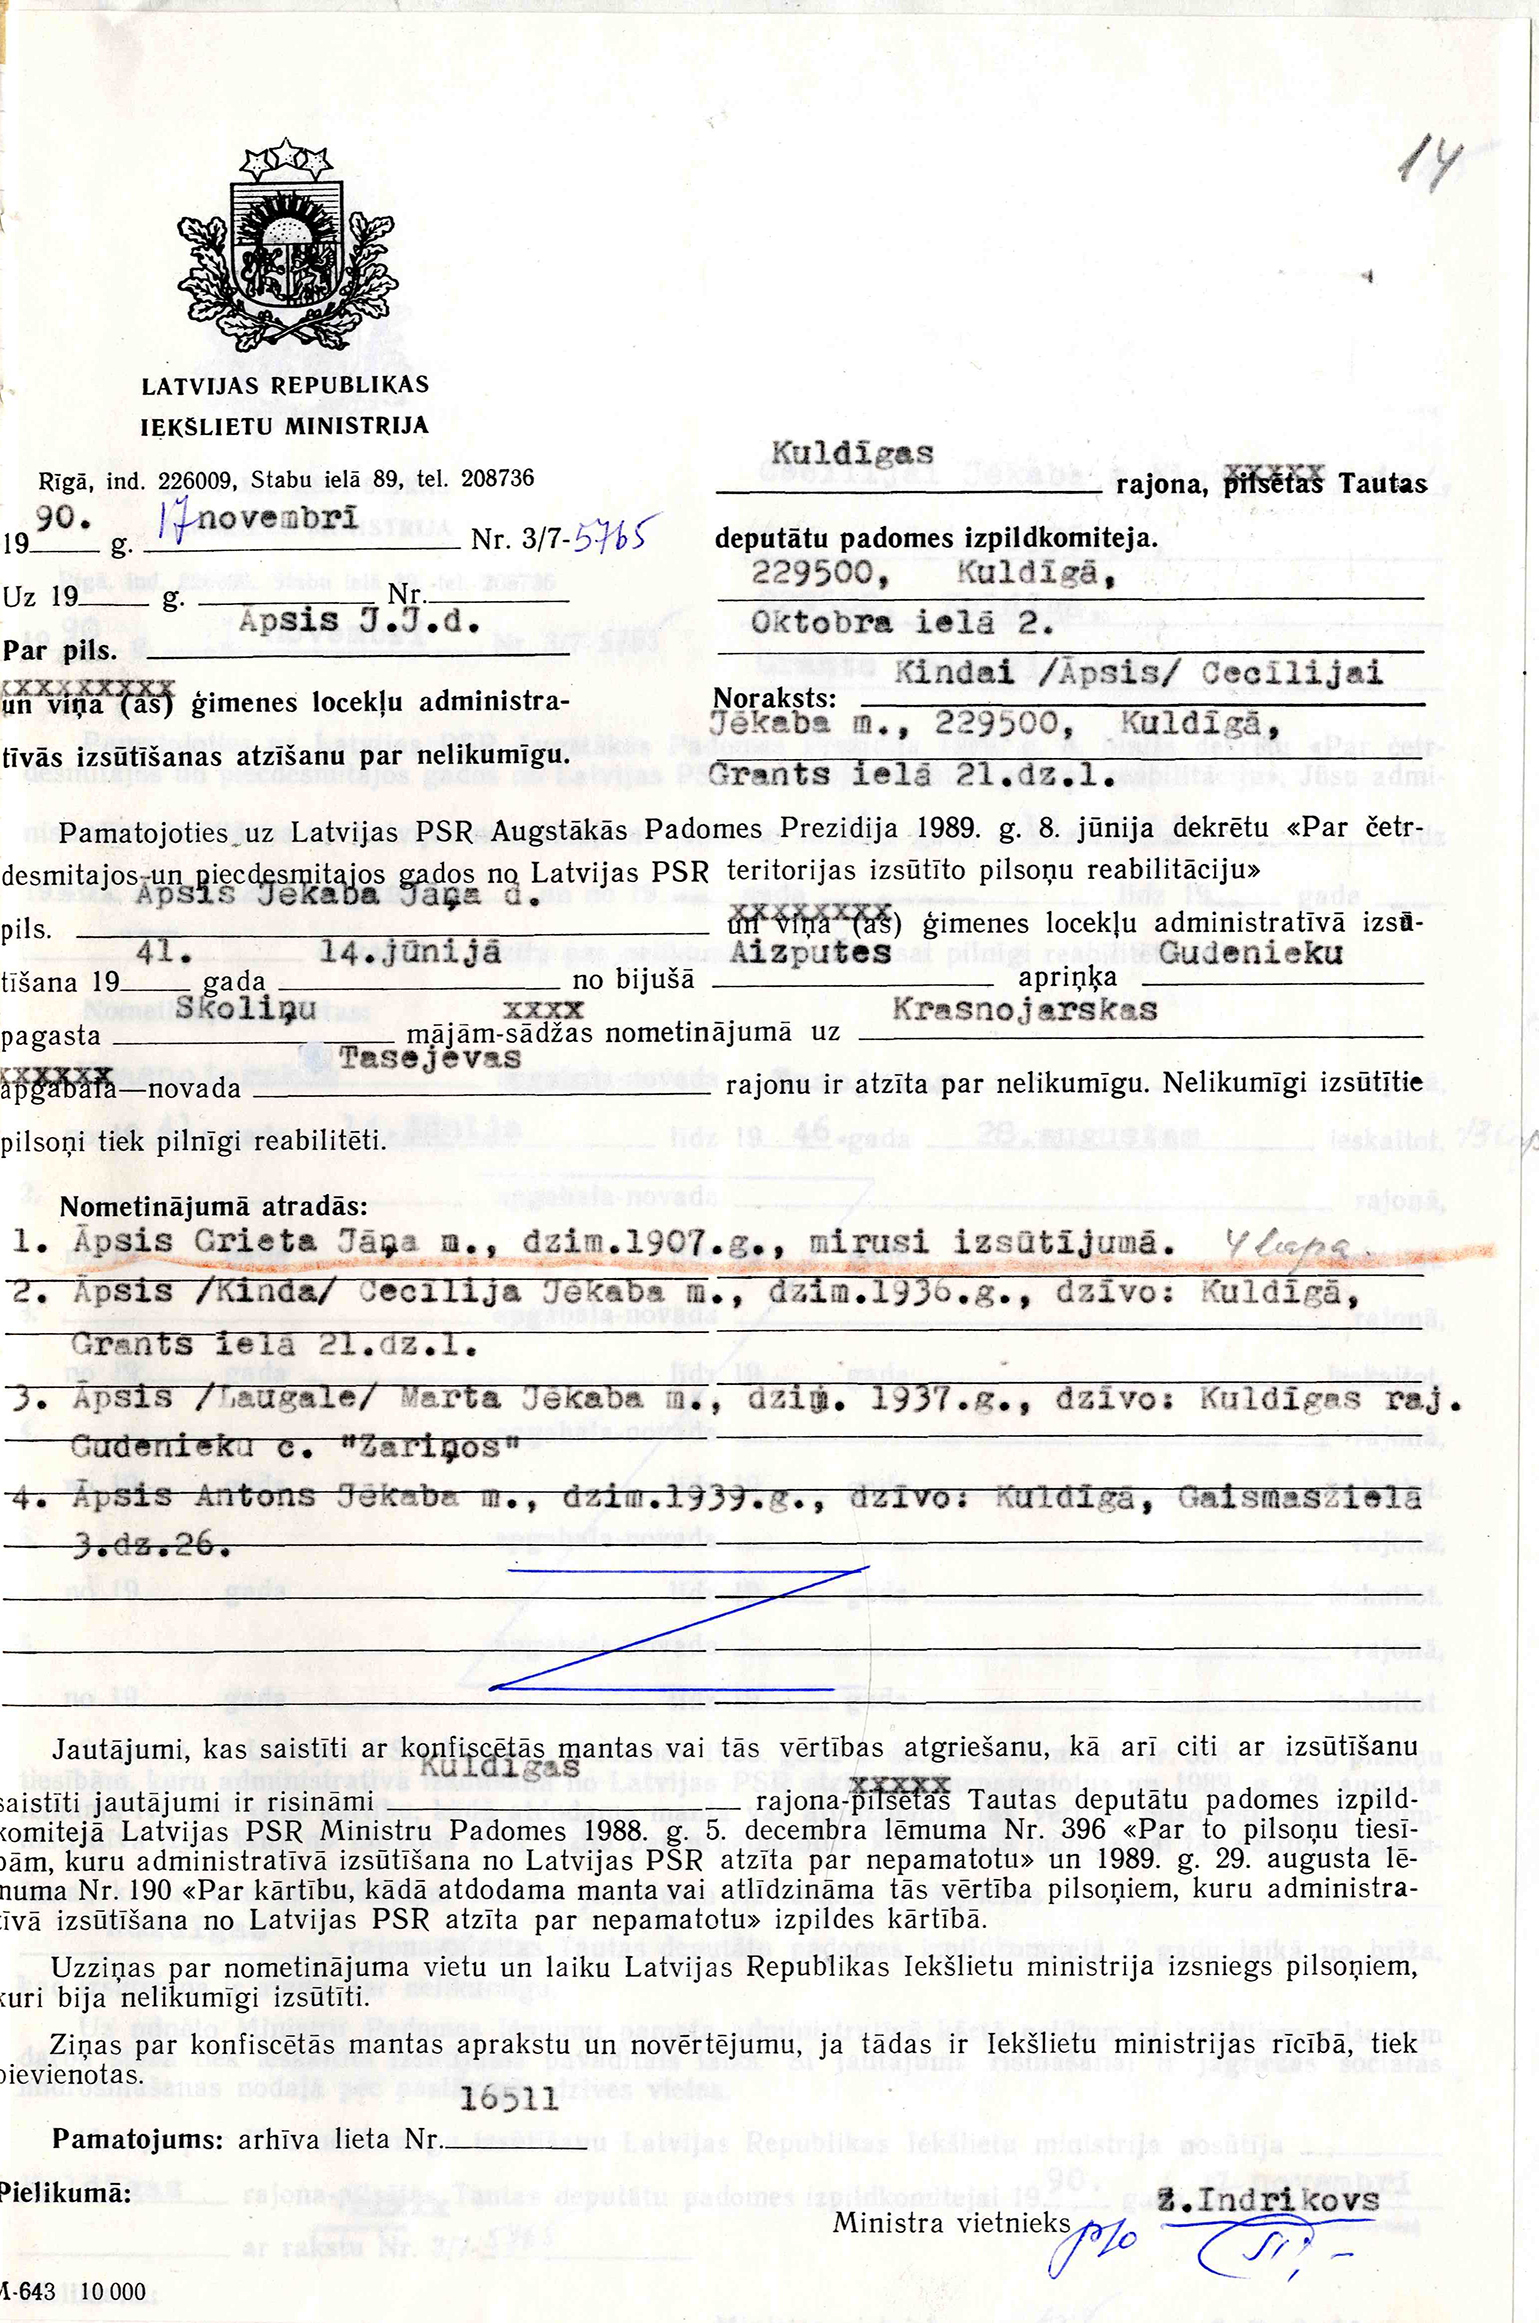 14
LATVIJAS REPUBLIKAS
IEKŠLIETU MINISTRIJA
Rīgā, ind. 226009, Stabu ielā 89, tel. 208736
1990. g. 17 novembrī Nr. 3/7-5765
Uz 19 g. Nr.
Par pils. Apsis J.J.d.
un viņa (as) ģimenes locekļu administra-
tīvās izsūtīšanas atzīšanu par nelikumīgu.
Kuldīgas rajona, pilsētas Tautas
deputātu padomes izpildkomiteja.
229500, Kuldīgā,
Oktobra ielā 2.
Noraksts: Kindai /Āpsis/ Cecīlijai
Jēkaba m., 229500, Kuldīgā,
Grants ielā 21.dz.1.
Pamatojoties uz Latvijas PSR Augstākās Padomes Prezidija 1989. g. 8. jūnija dekrētu «Par četr-
desmitajos un piecdesmitajos gados no Latvijas PSR teritorijas izsūtīto pilsoņu reabilitāciju»
pils. Āpsis Jēkaba Jāņa d. un viņa (as) ģimenes locekļu administratīvā izsū-
tīšana 1941. gada 14.jūnijā no bijušā Aizputes apriņķa Gudenieku
pagasta Skoliņu xxxx mājām-sādžas nometinājumā uz Krasnojarskas
apgabala—novada Tasejevas rajonu ir atzīta par nelikumīgu. Nelikumīgi izsūtītie
pilsoņi tiek pilnīgi reabilitēti.
Nometinājumā atradās:
1. Āpsis Grieta Jāņa m., dzim.1907.g., mirusi izsūtījumā. 4 lapa.
2. Āpsis /Kinda/ Cecīlija Jēkaba m., dzim.1936.g., dzīvo: Kuldīgā,
Grants ielā 21.dz.1.
3. Āpsis /Laugale/ Marta Jēkaba m., dzim. 1937.g., dzīvo: Kuldīgas raj.
Gudenieku c. "Zariņos"
4. Āpsis Antons Jēkaba m., dzim.1939.g., dzīvo: Kuldīgā, Gaismas ielā
3.dz.26.
Jautājumi, kas saistīti ar konfiscētās mantas vai tās vērtības atgriešanu, kā arī citi ar izsūtīšanu
saistīti jautājumi ir risināmi Kuldīgas rajona-pilsētas Tautas deputātu padomes izpild-
komitejā Latvijas PSR Ministru Padomes 1988. g. 5. decembra lēmuma Nr. 396 «Par to pilsoņu tiesī-
bām, kuru administratīvā izsūtīšana no Latvijas PSR atzīta par nepamatotu» un 1989. g. 29. augusta lē-
muma Nr. 190 «Par kārtību, kādā atdodama manta vai atlīdzināma tās vērtība pilsoņiem, kuru administra-
tīvā izsūtīšana no Latvijas PSR atzīta par nepamatotu» izpildes kārtībā.
Uzziņas par nometinājuma vietu un laiku Latvijas Republikas Iekšlietu ministrija izsniegs pilsoņiem,
kuri bija nelikumīgi izsūtīti.
Ziņas par konfiscētās mantas aprakstu un novērtējumu, ja tādas ir Iekšlietu ministrijas rīcībā, tiek
pievienotas.
Pamatojums: arhīva lieta Nr. 16511
Pielikumā:
Ministra vietnieks p/o Z.Indrikovs
M-643 10 000